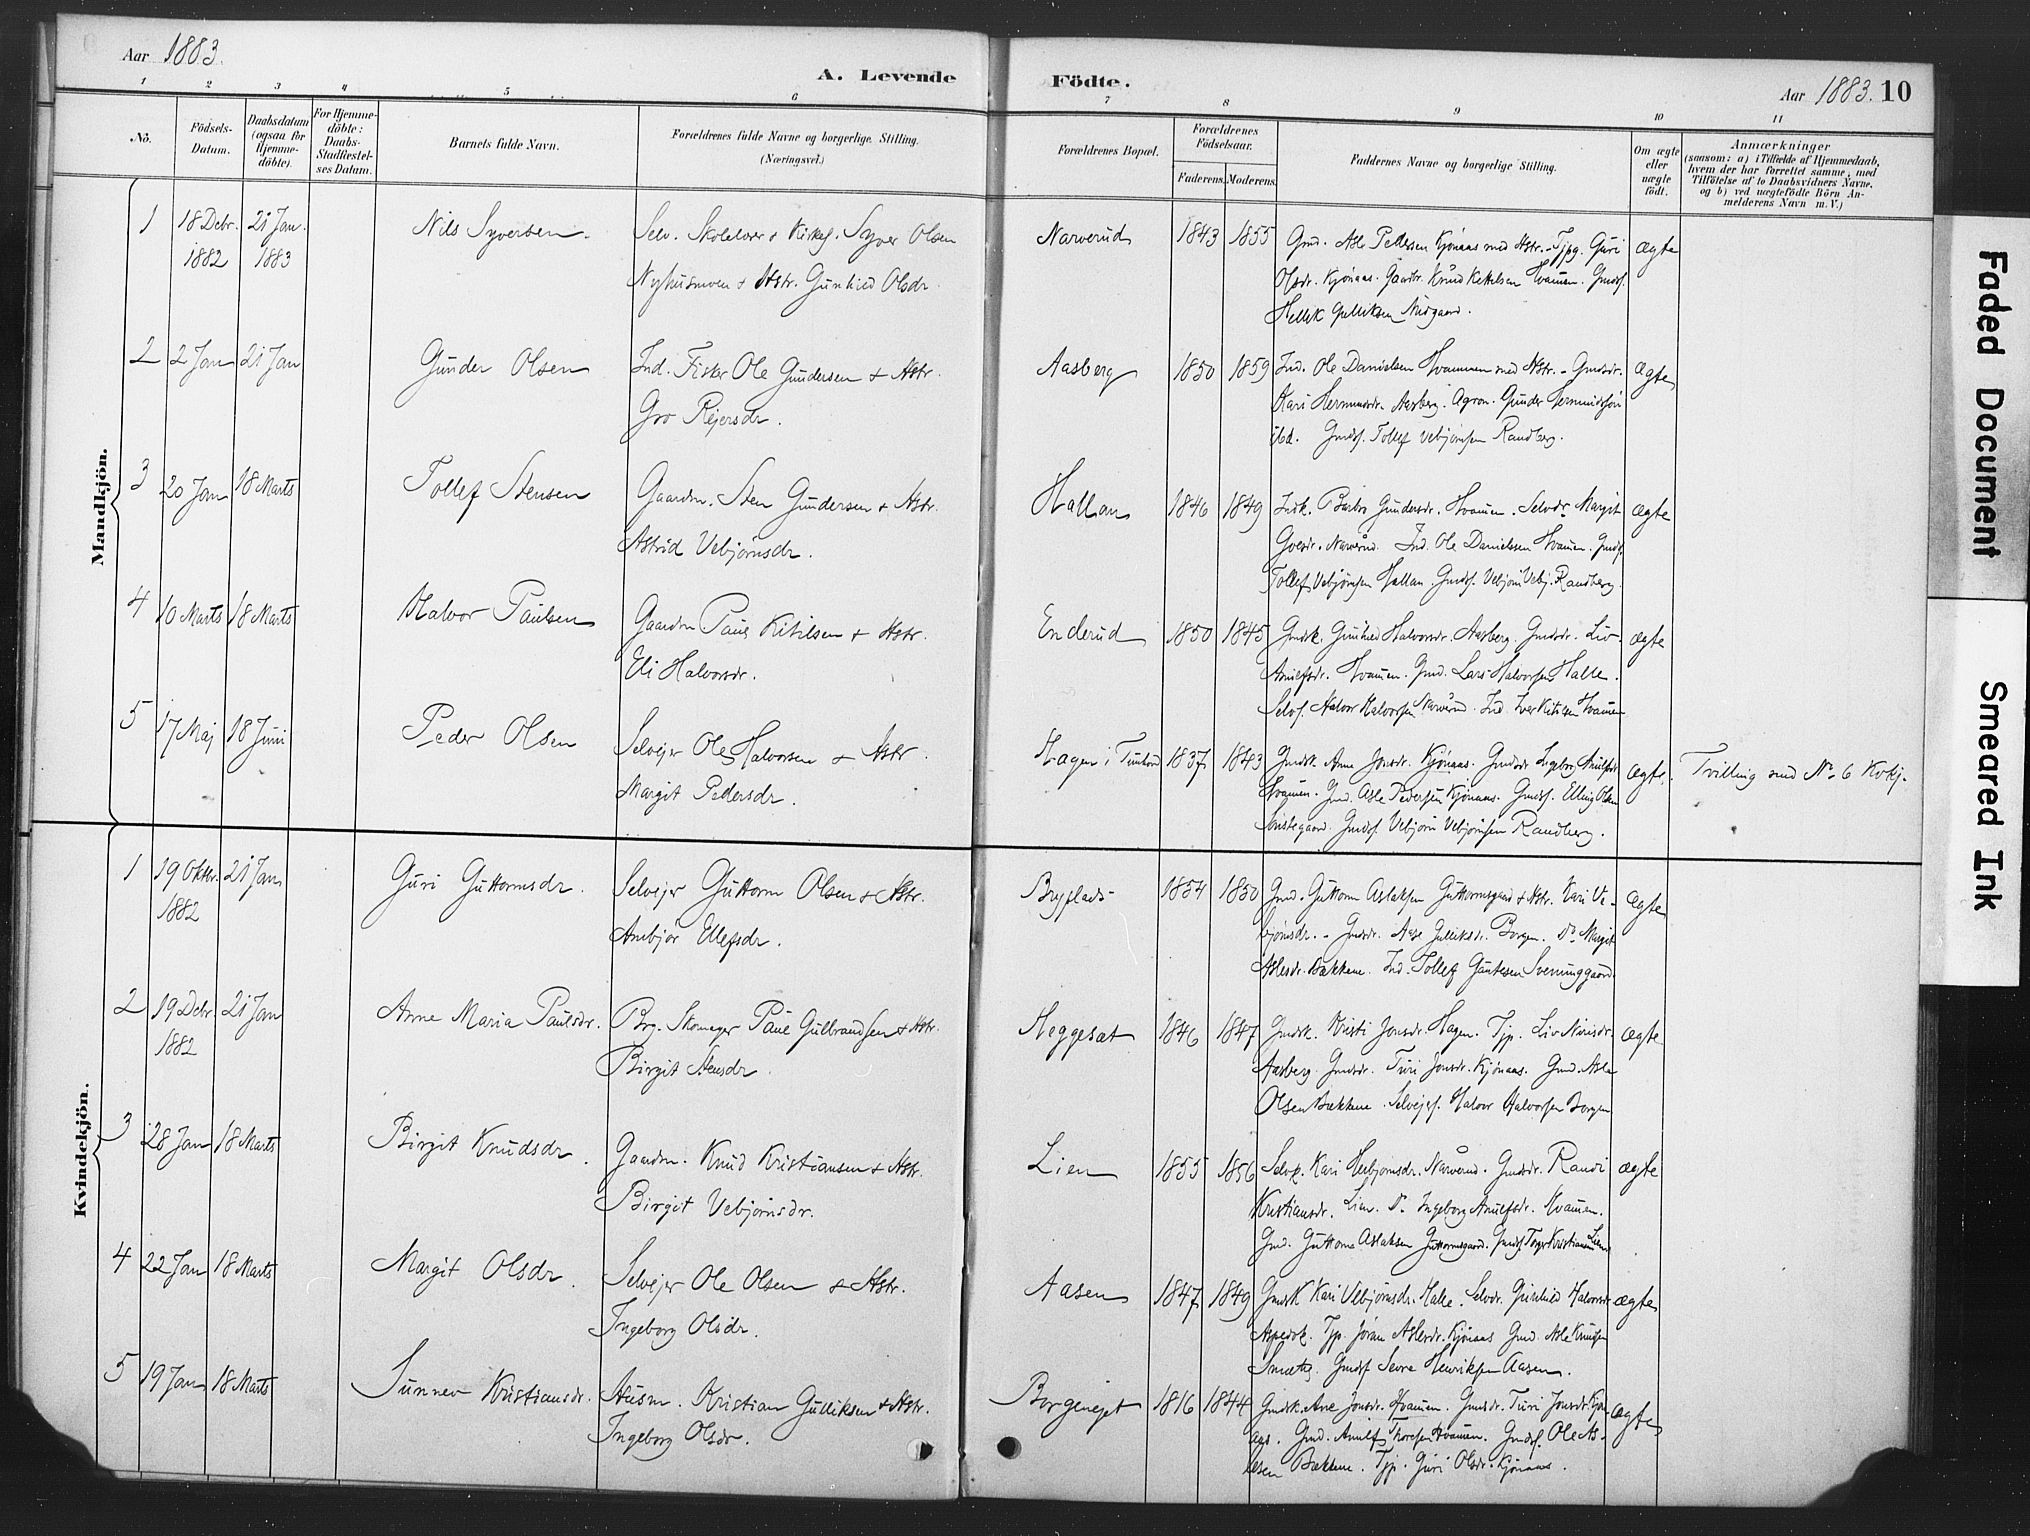 Aar 1883.
A. Levende Födte.
Aar 1883. 10
1 2 3 4 5 6 7 8 9 10 11
No.
Födsels-Datum.
Daabsdatum (ogsaa for Hjemme-döbte).
For Hjemme-döbte: Daabs-Stadfæstel-ses Datum.
Barnets fulde Navn.
Forældrenes fulde Navne og borgerlige Stilling.
(Næringsvei.)
Forældrenes Bopæl.
Forældrenes Födselsaar.
Faderens. Moderens.
Faddernes Navne og borgerlige Stilling.
Om ægte eller uægte födt.
Anmærkninger
(saasom: a) i Tilfælde af Hjemmedaab,
hvem der har forrettet samme, med
Tilföielse af to Daabsvidners Navne,
og b) ved uægtefödte Börn An-
melderens Navn m. V.)
Mandkjön.
1 18 Decbr. 1882 21 Jan. 1883 Nils Syversen. Selv. Skolelærer & Kirkes. Syver Olsen
Nyhusmoen & Hstr. Gunhild Olsdr.
Narverud 1843 1855 Gmd. Asle Pedersen Kjönaas med Hstr. - Tjpg. Guri
Olsdr. Kjönaas. Gaardbr. Knud Kettilsen Hvamen. Gmds.
Hellik Gulliksen Nürgaard.
ægte
2 2 Jan 21 Jan Gunder Olsen Ind. Fisker Ole Gundersen & Hstr.
Gro Rejersdr.
Aasberg 1850 1859 Ind. Ole Danielsen Hvammen med Hstr. - Gmdsdr.
Kari Hermundsdr. Aasberg. Agron. Gunder Hermundssön
ibd. Gmds. Tollef Vebjörnsen Randberg.
ægte
3 20 Jan 18 Marts Tollef Stensen Gaardm. Sten Gundersen & Hstr.
Astrid Vebjörnsdr.
Hallan 1846 1849 Indk. Barbro Gundersdr. Hvamen. Selvdr. Margit
Goesdr. Narverud. Ind. Ole Danielsen Hvamen. Gmds.
Tollef Vebjörnsen Hallan. Gmds. Vebjörn Vebj. Randberg.
ægte
4 10 Marts 18 Marts Halvor Paulsen Gaardm Paul Kitilsen & Hstr.
Eli Halvorsdr.
Enderud 1850 1845 Gmdk. Gunhild Halvorsdr. Aasberg. Gmdsdr. Liv
Arnulfsdr. Hvamen. Gmd. Lars Halvorsen Halle.
Selvs. Halvor Halvorsen Narverud. Ind. Iver Kitilsen Hvamen
ægte
5 17 Maj 18 Juni Peder Olsen Selvejer Ole Halvorsen & Hstr.
Margit Pedersdr.
Hagen i Tunhovd 1837 1843 Gmdsk. Anne Jonsdr. Kjönaas. Gmdsdr Ingebor Arnulfsdr
Hvamen. Gmd. Asle Pedersen Kjönaas. Gmds. Elling Olsen
Gmds. Vebjörn Vebjörnsen Randberg.
ægte. Tvilling med No. 6 Kvkj.
Kvindekjön.
1 19 Oktbr. 1882 21 Jan Guri Guttormsdr. Selvejer Guttorm Olsen & Hstr.
Ambjör Ellefsdr.
1854 1850 Gmd. Guttorm Aslaksen Guttormsgaard & Hstr. Kari Ve-
björnsdr. - Gmdsdr. Aase Gulliksdr. Borgen. Do Margit
Aslesdr. Bækkene. Ind. Tollef Gautesen Svenunggaard.
ægte
2 19 Decbr 1882 21 Jan Anne Maria Paulsdr. Brg. Skomager Paul Gulbrandsen & Hstr.
Birgit Stensdr
Heggesæt 1846 1847 Gmdsk. Kristi Jonsdr. Hagen. Tjp. Liv
Aasberg. Gmdsdr. Turi Jonsdr. Kjönaas. Gmd. Asle
Olsen Bækkene. Selvejes. Halvor Halvorsen Borgen
ægte
3 28 Jan 18 Marts Birgit Knudsdr. Gaardm. Knud Kristiansen & Hstr.
Birgit Vebjörnsdr.
Lien 1855 1856 Selvk. Kari Herbjörnsdr. Narverud. Gmdsdr. Randi
Kristiansdr. Lien. Do. Ingeborg Arnulfsdr. Hvamen.
Gmd. Guttorm Aslaksen Guttormsgaard. Gmds. Torger Kristiansen Lien
ægte
4 22 Jan 18 Marts Margit Olsdr. Selvejer Ole Olsen & Hstr.
Ingeborg Olsdr.
Aasen 1847 1849 Gmdsk Kari Vebjörnsdr. Halle. Selvdr. Gunhild Halvorsdr
Tjp. Jöran Aslesdr. Kjönaas Gmd. Asle Knudsen
Gmds Sevre Henriksen Aasen.
ægte
5 19 Jan 18 Marts Sunnev Kristiansdr. Husm. Kristian Gulliksen & Hstr.
Ingeborg Olsdr.
Borgenejet 1816 1844 Gmdsk. Ane Jonsdr. Hvamen. Gmdsdr. Turi Jonsdr Kjön-
aas. Gmd. Arnulf Thoresen Hvamen. Gmds. Ole As-
lesen Bækkene. Tjp. Guri Olsdr. Kjönaas.
ægte
Faded Document
Smeared Ink